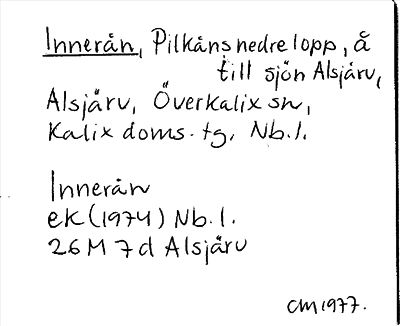 Innerån, Pilkåns nedre lopp, å
till sjön Alsjärv,
Alsjärv, Överkalix sn,
Kalix doms. tg. Nb. l.
Innerån
ek (1974) Nb. l.
26 M 7 d Alsjärv
CM 1977.